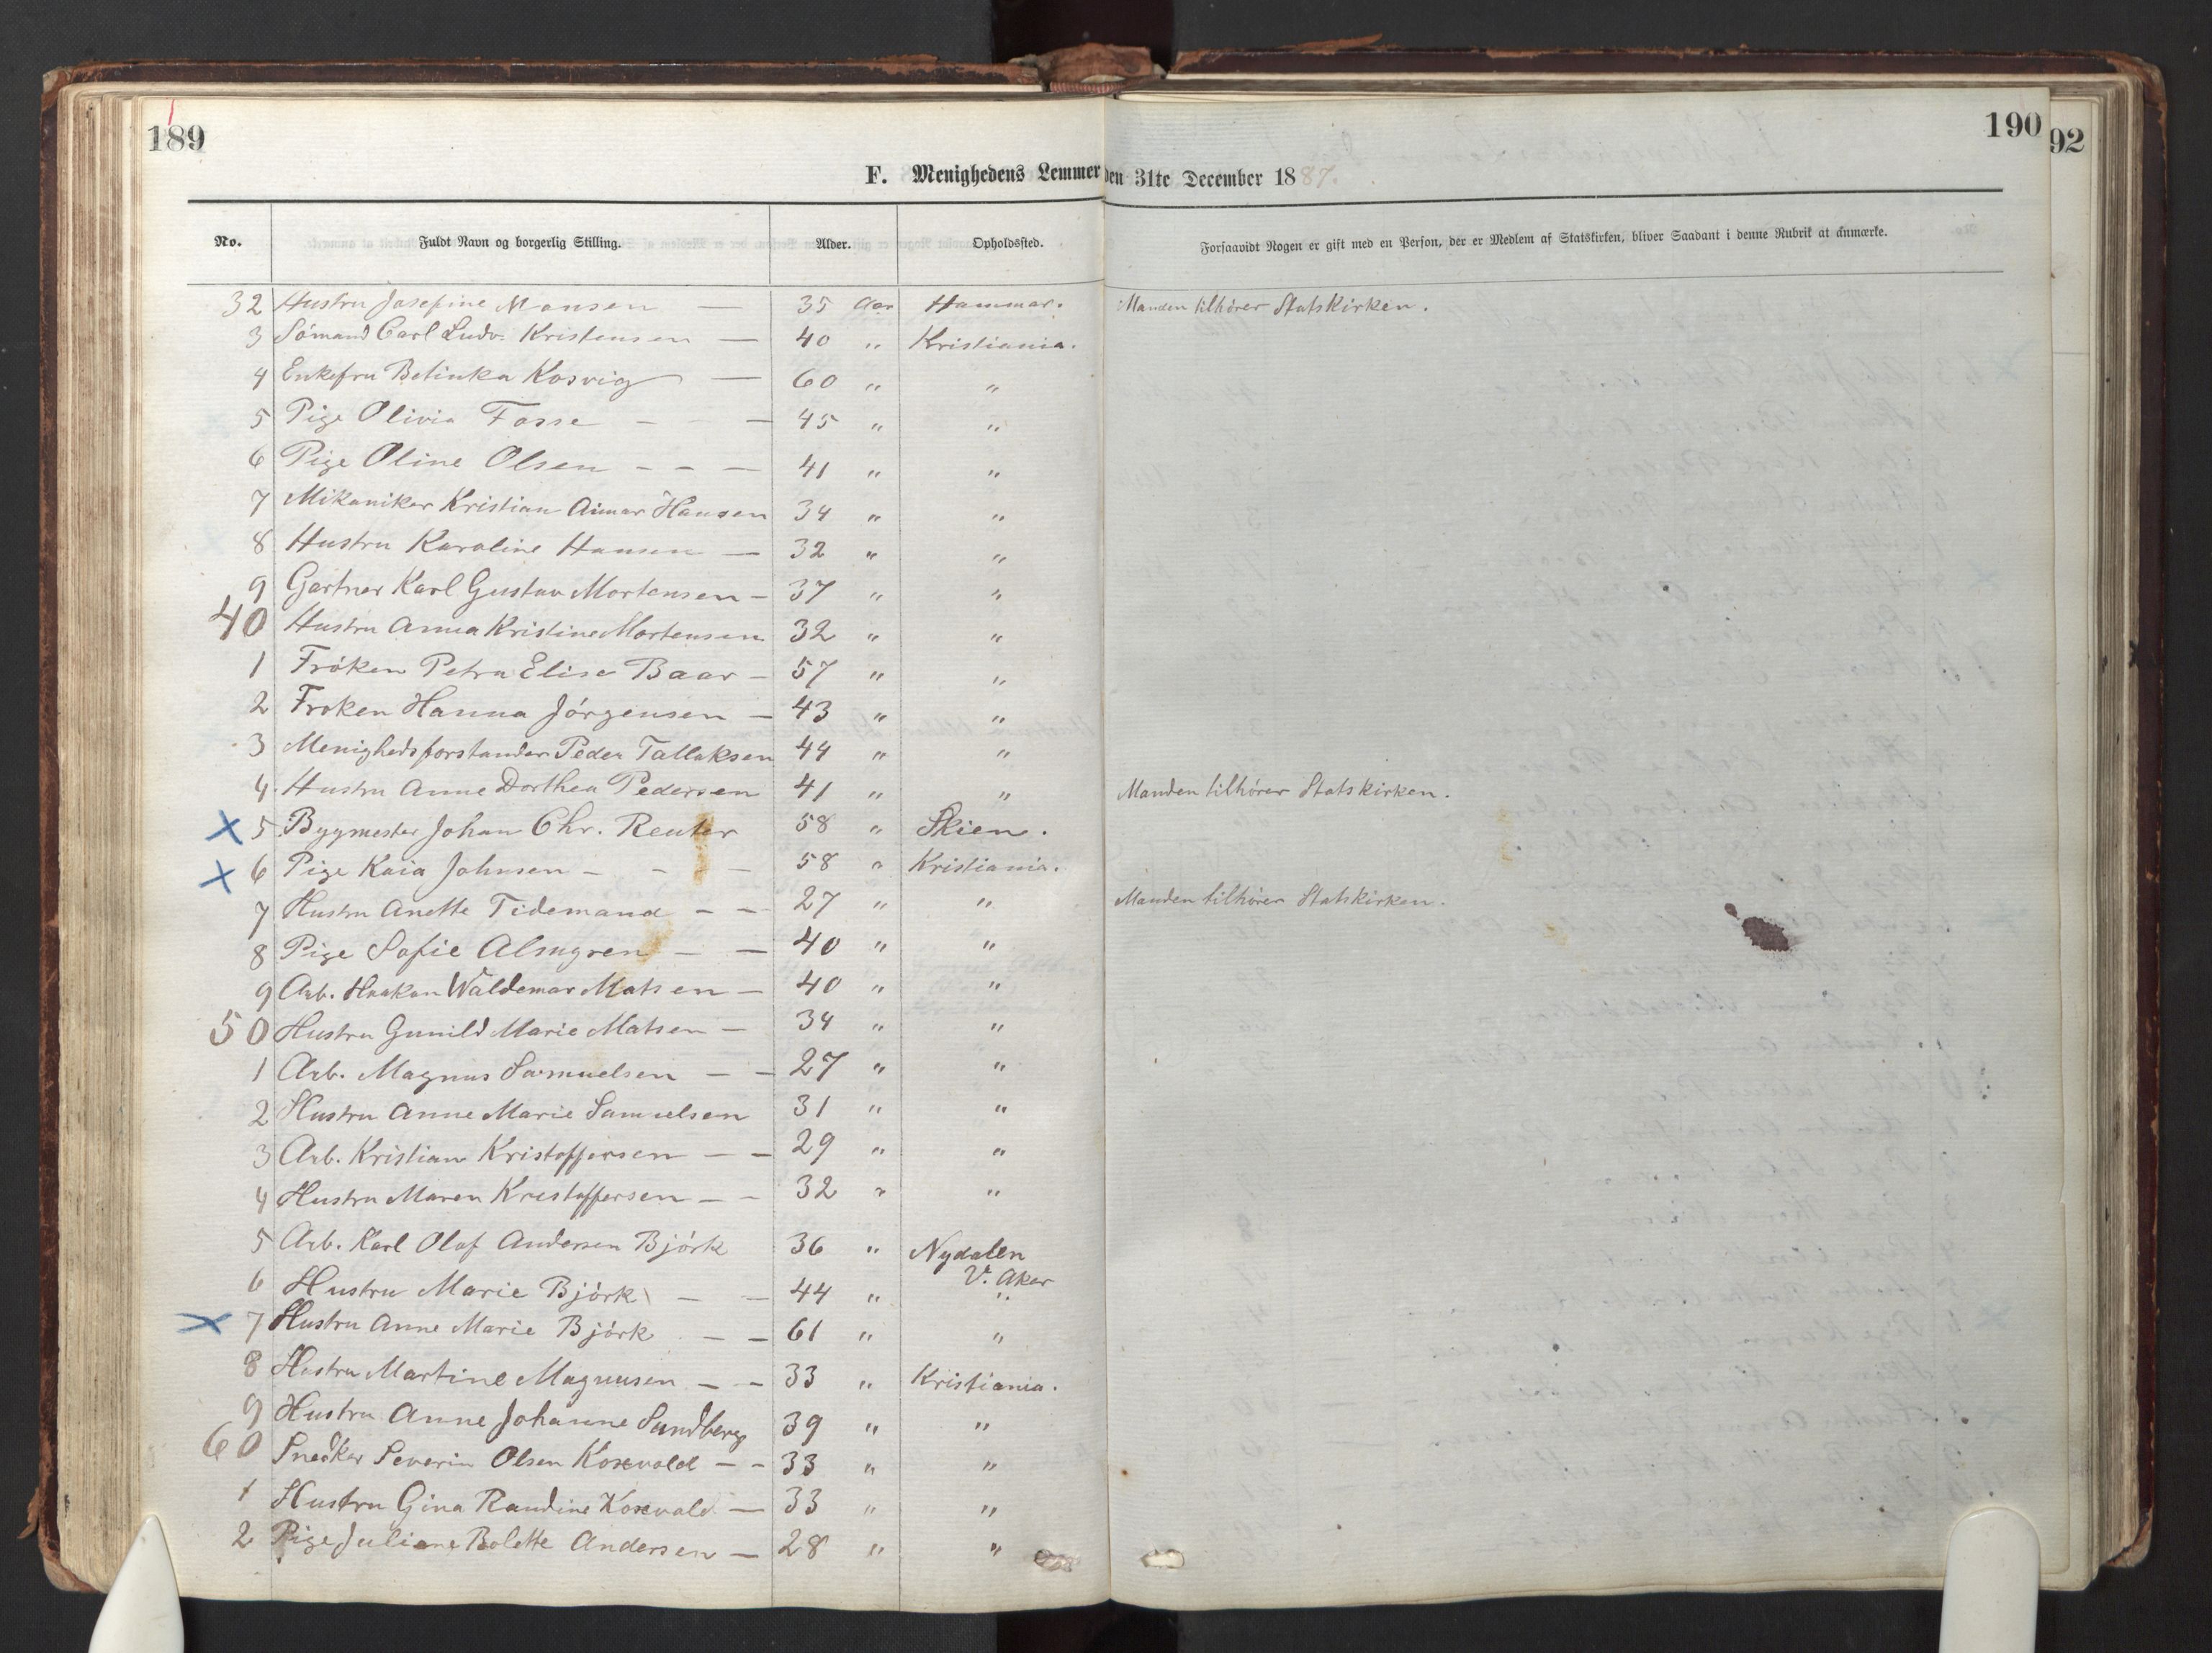 189
190
92
F. Menighedens Lemmer den 31te December 1887.
No. Fuldt Navn og borgerlig Stilling. Alder. Opholdssted. Forsaavidt Nogen er gift med en Person, der er Medlem af Statskirken, bliver Saadant i denne Rubrik at anmærke.
32 Hustru Josefine Monsen — 35 Aar Hammar. Manden tilhører Statskirken.
3 Sømand Carl Ludv. Kristensen — 40 " Kristiania.
4 Enkefru Betinka Kosvig — 60 " "
5 Pige Olivia Fosse — — 45 " "
6 Pige Oline Olsen — — — 41 " "
7 Mikaniker Kristian Aimar Hansen 34 " "
8 Hustru Karoline Hansen — 32 " "
9 Gartner Karl Gustav Mortensen — 37 " "
40 Hustru Anna Kristine Mortensen 32 " "
1 Frøken Petra Elise Baar — 57 " "
2 Froken Hanna Jørgensen — 43 " "
3 Menighedsforstander Peder Tallaksen 44 " "
4 Hustru Anne Dorthea Pedersen 41 " " Manden tilhører Statskirken.
X 5 Bygmester Johan Chr. Reuter 58 " Skien.
X 6 Pige Kaia Johnsen — — — 58 " Kristiania.
7 Hustru Anette Tidemand — — 27 " " Manden tilhører Statskirken.
8 Pige Sofie Almgren — — 40 " "
9 Arb. Haakon Waldemar Matsen — 40 " "
50 Hustru Gunild Marie Matsen — 34 " "
1 Arb. Magnus Samuelsen — — 27 " "
2 Hustru Anne Marie Samuelsen 31 " "
3 Arb. Kristian Kristoffersen — — 29 " "
4 Hustru Maren Kristoffersen — — 32 " "
5 Arb. Karl Olaf Andersen Bjørk 36 " Nydalen
V. Aker
6 Hustru Marie Bjørk — — 44 " "
X 7 Hustru Anne Marie Bjørk — — 61 " "
8 Hustru Martine Magnusen — — 33 " Kristiania.
9 Hustru Anne Johanne Sundberg 39 " "
60 Snedker Severin Olsen Koxvold — — 33 " "
1 Hustru Gina Randine Koxvold — 33 " "
2 Pige Juliane Bolette Andersen — 28 " "